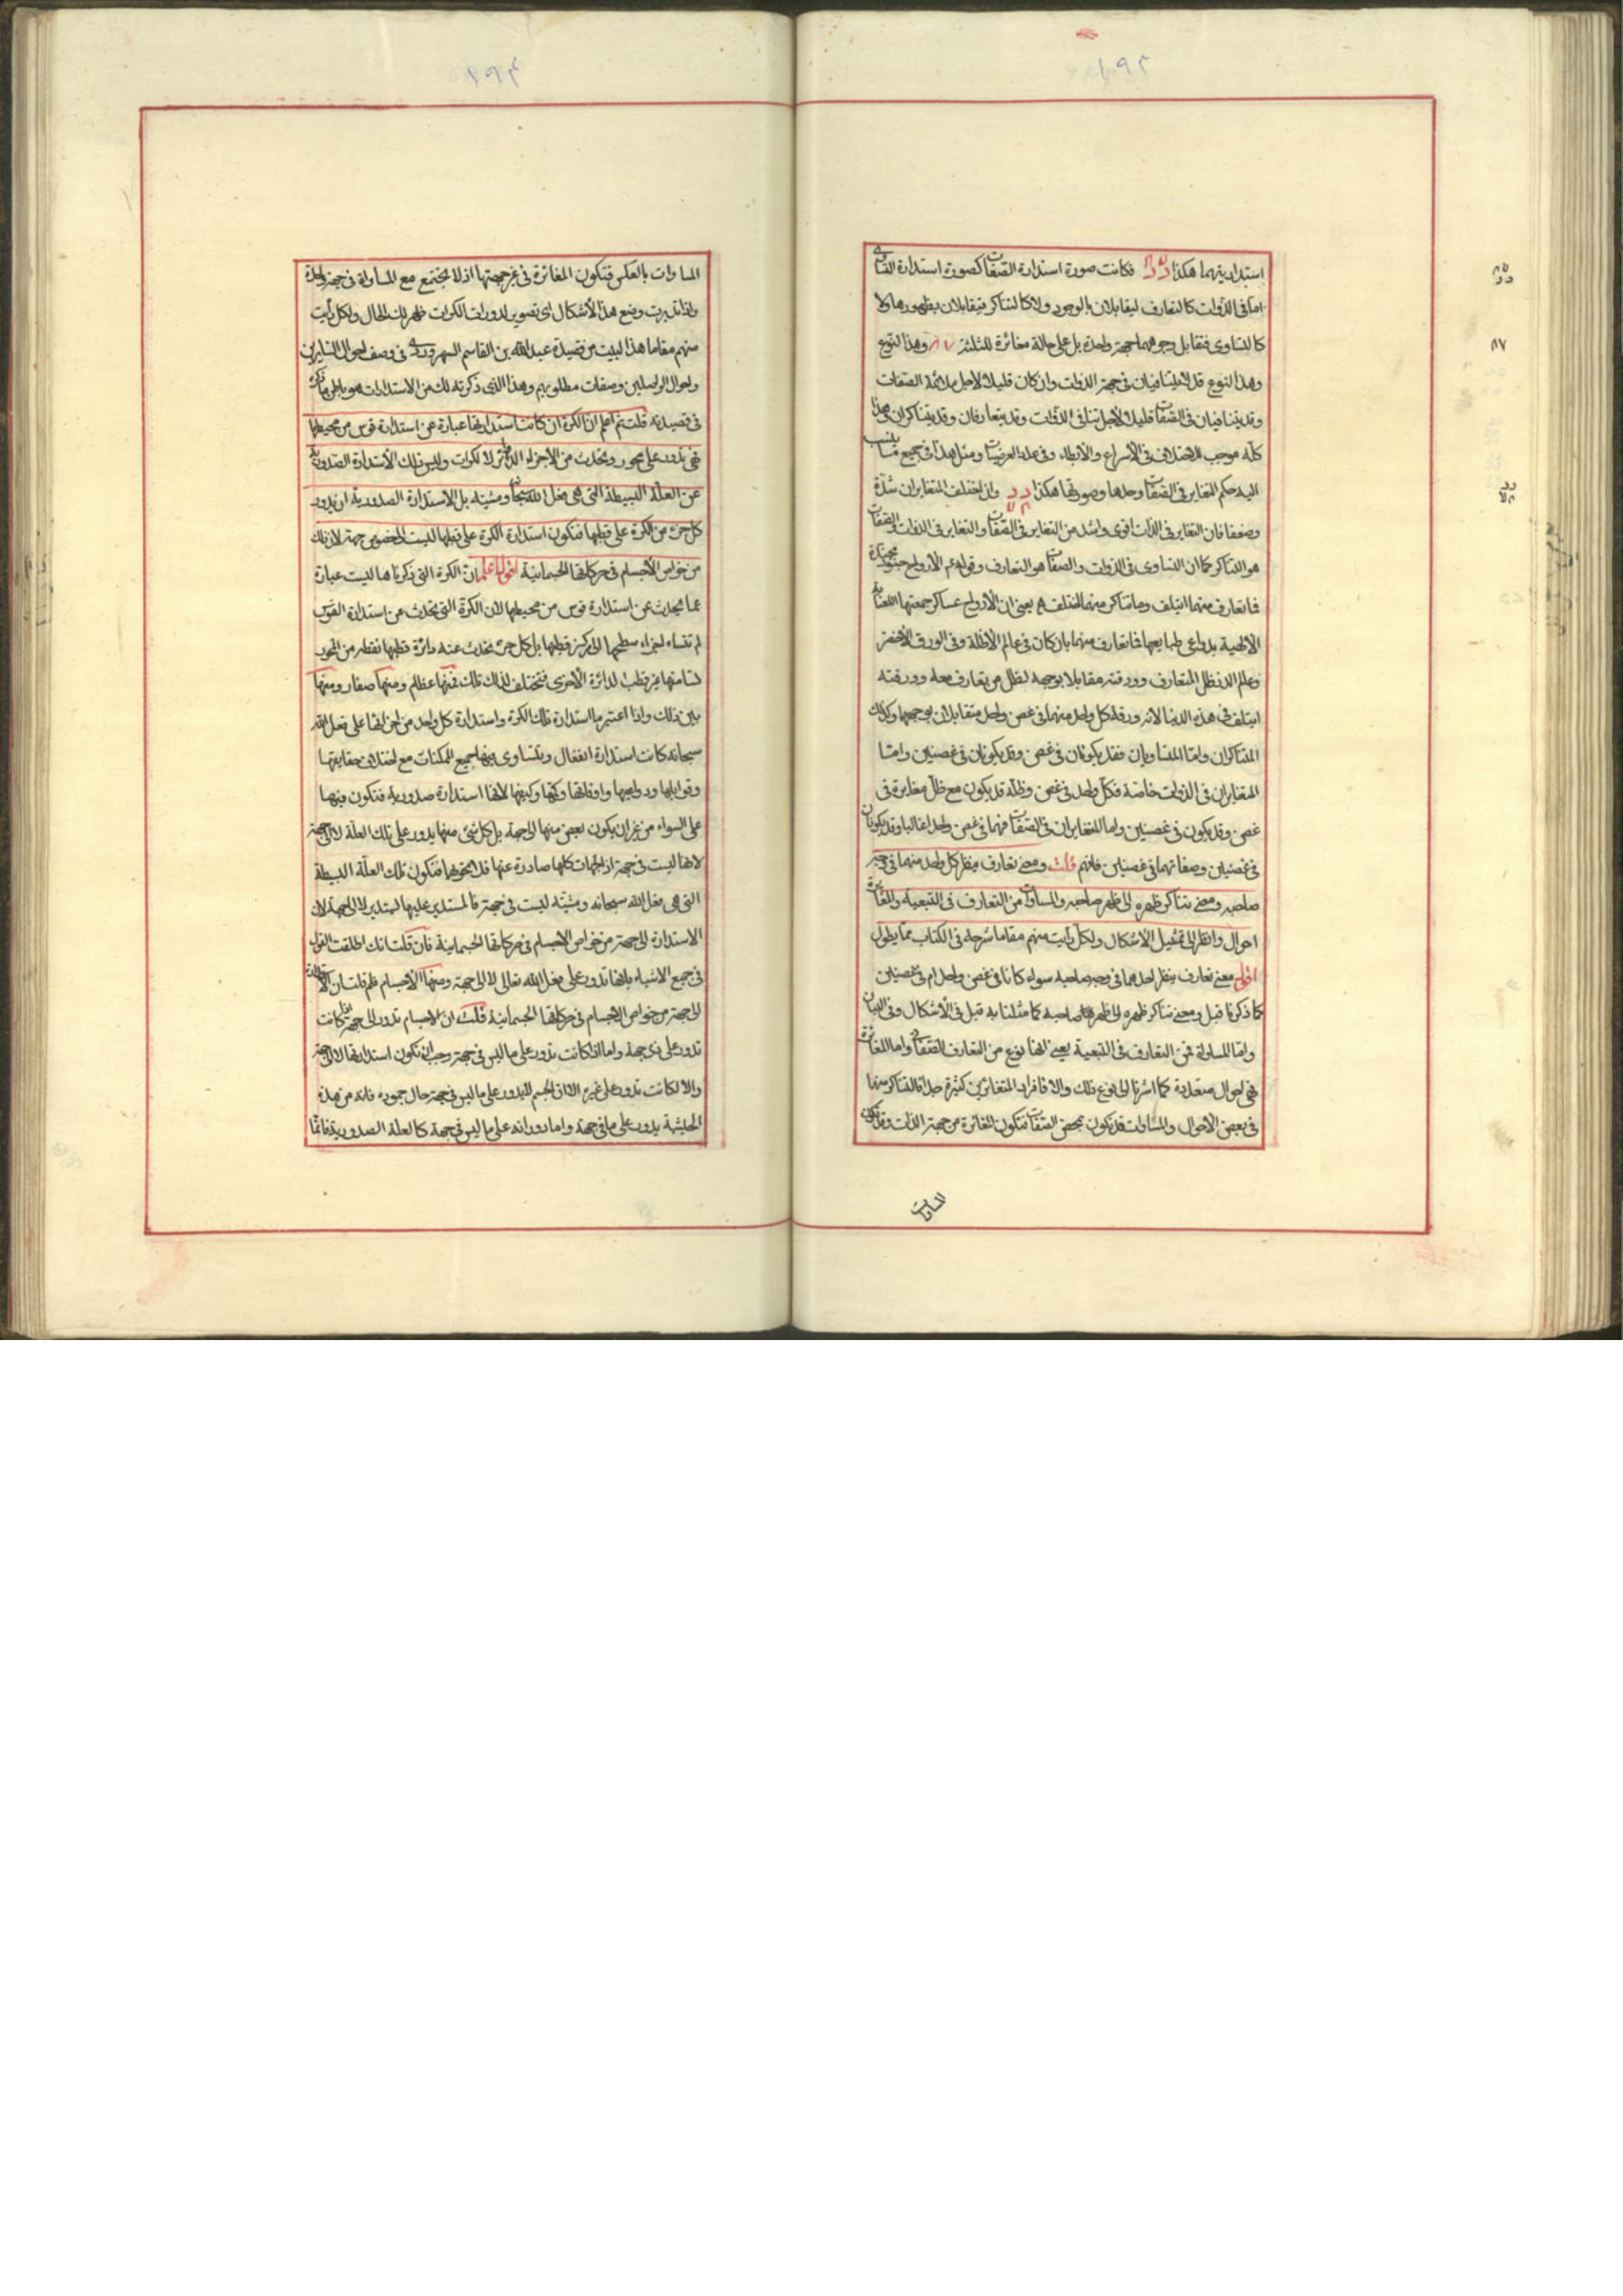 استدارتيهما هكذا فكانت صورة استدارة الصفات كصورة استدارة
اما في الذوات كالتعارف ليقابلان بالوجود ولا كالتناكر فيقابلان بظهورهما ولا
كالتساوى فتقابل وجوههما جهة واحدة بل على حالة مغائرة للثلثة وهذا النوع
وهذا النوع قد يتنافيان فى جهة الذوات وان كان قليلا لاجل ملائمة الصفات
وقد يتنافيان فى الصفات قليلا لاجل تنافى الذوات وقد يتعارفان وقد يتناكران وهذا
كله موجب للاختلاف فى الأسراع والأبطاء وفى ومثل هذا فى جميع ما ينسب
اليه حكم التغاير فى الصفات وحدها وصورتها هكذا وان اختلف المتغايران شدة
وضعفا فان التغاير فى الذات اقوى واشد من التغاير فى الصفات والتغاير فى الذوات والصفات
هو التناكر كما ان التساوى فى الذوات والصفات هو التعارف وقوله ع الأرواح جنود مجندة
فما تعارف منها ائتلف وما تناكر منها اختلف يعنى ان الأرواح عساكر جمعتها العناية
الألهية بدواعى طبايعها فما تعارف منها بان كان فى عالم الأظلة وفى الورق الأخضر
وعالم الذر نظر المتعارف وورقته مقابلا بوجهه لظل من تعارف معه وورقته
ائتلف فى هذه الدنيا لانه ورقة كل واحد منهما فى غصن واحد متقابلان بوجههما وكذلك
المتناكران واما المتساويان فقد يكونان فى غصن وقد يكونان فى غصنين واما
المتغايران فى الذوات خاصة فكل واحد فى غصن وظله قد يكون مع ظل مغايره فى
غصن وقد يكون فى غصنين واما المتغايران فى الصفات فهما فى غصن واحد غالبا وقد يكونان
فى غصنين وصفاتهما فى غصنين فافهم قلت ومعنى تعارف ينظر كل واحد منهما فى وجه
صاحبه ومعنى تناكر ظهره الى ظهر صاحبه والمساوات من التعارف فى التبعية والمغايرة
احوال وانظر الى تمثيل الأشكال ولكل رأيت منهم مقاما شرحه فى الكتاب مما يطول
اقول معنى تعارف ينظر احدهما فى وجه صاحبه سواء كانا فى غصن واحد ام فى غصنين
كما ذكرنا قبل ومعنى تناكر ظهره الى ظهر صاحبه كما مثلنا به قبل فى الأشكال وفى البيان
واما المساواة فمن التعارف فى التبعية يعنى انها نوع من التعارف الصفات واما المغائرة
فهى احوال متعددة كما اشرنا الى نوع ذلك والا فافراد المتغائرين كثيرة جدا فالتناكر منها
فى بعض الأحوال والمساوات قد تكون بمحض الصفات فتكون المغائرة من جهة الذات وقد تكون
المساوات
المساوات بالعكس فتكون المغائرة فى غير جهتها اذ لا تجتمع مع المساواة فى جهة واحدة
واذا تدبرت وضع هذه الأشكال اى تصوير لدورات الكرات ظهر لك الحال ولكل رأيت
منهم مقاما هذا البيت من قصيدة عبد الله بن القاسم السهروردى فى وصف احوال السايرين
واحوال الواصلين وصفات مطلوبهم وهذا الذى ذكرته لك من الاستدارات هو باطن ما ذكره
فى قصيدته قلت ثم اعلم ان الكرة ان كانت استدارتها عبارة عن استدارة قوس من محيطها
فهى تدور على محور وتحدث من الأجزاء الدوائر لا الكرات وليس تلك الأستدارة الصدورية
عن العلة البسيطة التى هى فعل الله سبحانه ومشيته بل الاستدارة الصدورية ان يدور
كل جزء من الكرة على قطبها فتكون استدارة الكرة على قطبها ليست الى خصوص جهة لان ذلك
من خواص الأجسام فى حركاتها الجسمانية اقول اعلم ان الكرة التى ذكرناها ليست عبارة
عما يحدث عن استدارة قوس من محيطها لان الكرة التى تحدث عن استدارة القوس
لم تتساو اجزاء سطحها الى مركز قطبها بل كل جزء تحدث عنه دائرة قطبها نقطة من المحور
تسامتها غير قطب الدائرة الأخرى فتختلف لذلك تلك فمنها عظام ومنها صغار ومنها
بين ذلك واذا اعتبر ما استدارة تلك الكرة واستدارة كل واحد من اجزائها على فعل الله
سبحانه كانت استدارة انفعال وتتساوى فيها جميع الممكنات مع اختلاف حقايقها
وقوابلها ودواعيها واوقاتها وكمها وكيفها لانها استدارة صدورية فتكون فيها
على السواء من غير ان يكون بعض منها الى جهة بل كل شىء منها يدور على تلك العلة لا الى جهة
لانها ليست فى جهة اذ الجهات كلها صادرة عنها فلا تحوها فتكون تلك العلة البسيطة
التى هى فعل الله سبحانه ومشيته ليست فى جهة فالمستدير عليها يستدير لا الى جهة لان
الاستدارة الى جهة من خواص الاجسام فى حركاتها الجسمانية فان قلت انك اطلقت القول
فى جميع الاشياء بانها تدور على فعل الله تعالى لا الى جهة ومنها الأجسام فلم قلت ان الاستدارة
الى جهة من خواص الاجسام فى حركاتها الجسمانية قلت ان الاجسام تدور الى جهة اذا كانت
تدور على ذى جهة واما اذا كانت تدور على ما ليس فى جهة وجب ان تكون استدارتها لا الى جهة
والا لكانت تدور على غيره الا ان الجسم لا يدور على ما ليس فى جهة حال جموده فانه من هذه
الحيثية يدور على ما فى جهة واما دورانه على ما ليس فى جهة كالعلة الصدورية فانما